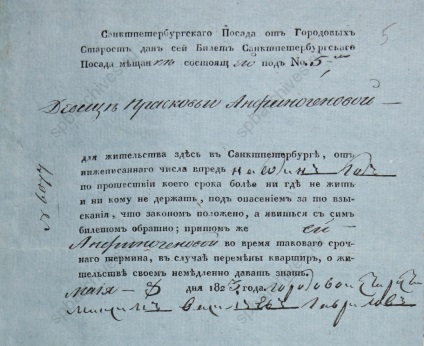 5
Санктпетербургскаго Посада отъ Городовыхъ
Старостъ данъ сей Билетъ Санктпетербургскаго
Посада мѣщан состоящ подъ No. 5
Девицѣ Прасковьи Анфиногеновой
для жительства здѣсь въ Санктпетербургѣ, отъ
нижеписаннаго числа впредь на одинъ годъ
по прошествіи коего срока болѣе ни гдѣ не жить
и ни кому не держать, подъ опасеніемъ за то взы-
сканія, что закономъ положено, а явиться съ симъ
билетомъ обратно; притомъ же ей
Анфиногеновой во время таковаго сроч-
наго термина, въ случаѣ перемѣны квартиръ, о
жительствѣ своемъ немѣдленно давать знать,
Маія дня 182 года. Городовой
Гавриловъ